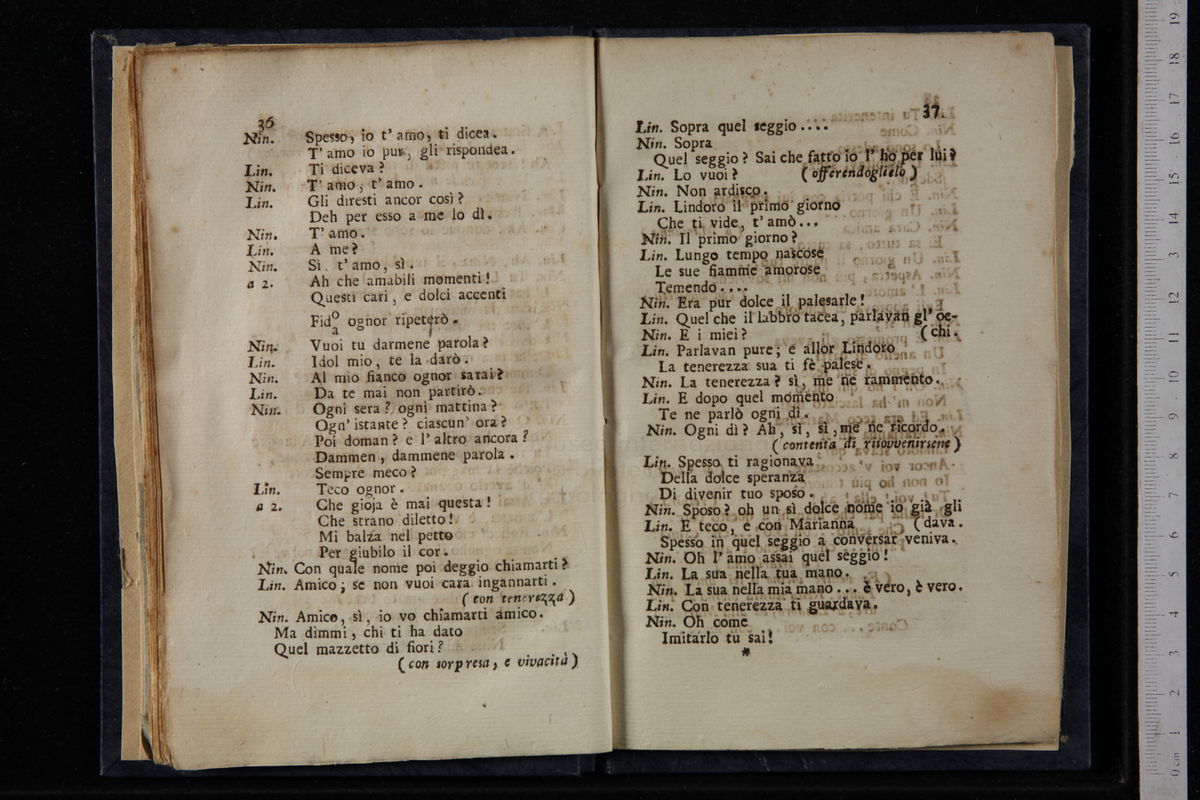 36
Nin. Spesso, io t' amo, ti dicea.
T' amo io pur, gli rispondea.
Lin. Ti diceva?
Nin. T' amo, t' amo.
Lin. Gli diresti ancor così?
Deh per esso a me lo dì.
Nin. T' amo.
Lin. A me?
Nin. Sì, t' amo, sì.
a 2. Ah che amabili momenti!
Questi cari, e dolci accenti
Fid o/a ognor ripeterò.
Nin. Vuoi tu darmene parola?
Lin. Idol mio, te la darò.
Nin. Al mio fianco ognor sarai?
Lin. Da te mai non partirò.
Nin. Ogni sera? ogni mattina?
Ogn' istante? ciascun' ora?
Poi doman? e l' altro ancora?
Dammen, dammene parola.
Sempre meco?
Lin. Teco ognor.
a 2. Che gioja è mai questa!
Che strano diletto!
Mi balza nel petto
Per giubilo il cor.
Nin. Con quale nome poi deggio chiamarti?
Lin. Amico; se non vuoi cara ingannarti.
(con tenerezza)
Nin. Amico, sì, io vo chiamarti amico.
Ma dimmi, chi ti ha dato
Quel mazzetto di fiori?
(con sorpresa, e vivacità)
37
Lin. Sopra quel seggio....
Nin. Sopra
Quel seggio? Sai che fatto io l' ho per lui?
Lin. Lo vuoi? (offerendoglielo)
Nin. Non ardisco.
Lin. Lindoro il primo giorno
Che ti vide, t' amò...
Nin. Il primo giorno?
Lin. Lungo tempo nascose
Le sue fiamme amorose
Temendo....
Nin. Era pur dolce il palesarle!
Lin. Quel che il labbro tacea, parlavan gl' oc-
Nin. E i miei? (chi.
Lin. Parlavan pure; e allor Lindoro
La tenerezza sua ti fè palese.
Nin. La tenerezza? sì, me ne rammento.
Lin. E dopo quel momento
Te ne parlò ogni dì.
Nin. Ogni dì? Ah, sì, sì, me ne ricordo.
(contenta di risovvenirsene)
Lin. Spesso ti ragionava
Della dolce speranza
Di divenir tuo sposo.
Nin. Sposo? oh un sì dolce nome io già gli
Lin. E teco, e con Marianna (dava.
Spesso in quel seggio a conversar veniva.
Nin. Oh l' amo assai quel seggio!
Lin. La sua nella tua mano.
Nin. La sua nella mia mano... è vero, è vero.
Lin. Con tenerezza ti guardava.
Nin. Oh come
Imitarlo tu sai!
*